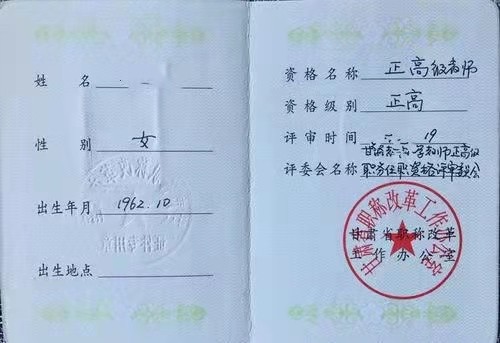 姓名
性别 女
出生年月 1962.10
出生地点
资格名称 正高级教师
资格级别 正高
评审时间 19
正高级
评委会名称 职务任职资格评审委员会
甘肃省职称改革
工作办公室
甘肃省职称改革工作办公室
证件专用章